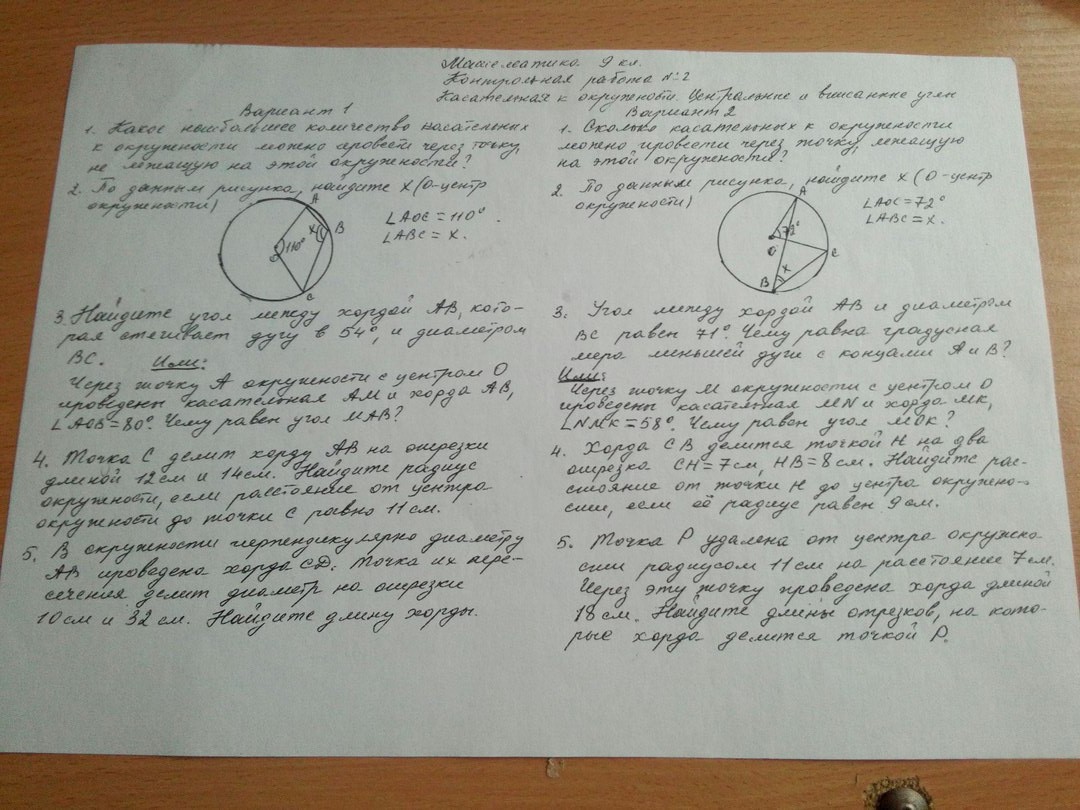 Математика. 9 кл.
Контрольная работа №2
Касательная к окружности. Центральные и вписанные углы
Вариант 1
1. Какое наибольшее количество касательных
к окружности можно провести через точку,
не лежащую на этой окружности?
2. По данным рисунка, найдите х (О-центр
окружности)
∠AOC = 110°.
∠ABC = x.
A
B
x
110°
O
C
3. Найдите угол между хордой AB, кото-
рая стягивает дугу в 54°, и диаметром
BC. Или:
Через точку A окружности с центром O
проведены касательная AM и хорда AB,
∠AOB = 80°. Чему равен угол MAB?
4. Точка C делит хорду AB на отрезки
длиной 12 см и 14 см. Найдите радиус
окружности, если расстояние от центра
окружности до точки C равно 11 см.
5. В окружности перпендикулярно диаметру
AB проведена хорда CD. Точка их пере-
сечения делит диаметр на отрезки
10 см и 32 см. Найдите длину хорды.
Вариант 2
1. Сколько касательных к окружности
можно провести через точку, лежащую
на этой окружности?
2. По данным рисунка, найдите х (О-центр
окружности)
∠AOC = 72°
∠ABC = x.
A
72°
O
C
x
B
3. Угол между хордой AB и диаметром
BC равен 71°. Чему равна градусная
мера меньшей дуги с концами A и B?
Или:
Через точку M окружности с центром O
проведены касательная MN и хорда MK,
∠NMK = 58°. Чему равен угол MOK?
4. Хорда CB делится точкой H на два
отрезка CH = 7 см, HB = 8 см. Найдите рас-
стояние от точки H до центра окружно-
сти, если её радиус равен 9 см.
5. Точка P удалена от центра окружно
сти радиусом 11 см на расстояние 7 см.
Через эту точку проведена хорда длиной
18 см. Найдите длины отрезков, на кото-
рые хорда делится точкой P.